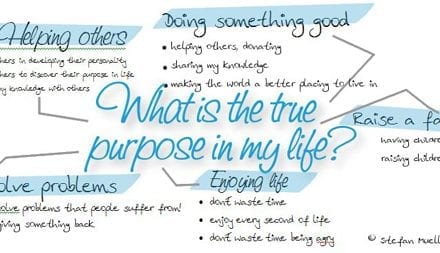 Helping others
hers in developing their personality
hers to discover their purpose in life
my knowledge with others
Doing something good
• helping others, donating
• sharing my knowledge
• making the world a better placing to live in
What is the true
purpose in my life?
Raise a fa
having childre
raising childre
olve problems
olve problems that people suffer from!
giving something back
Enjoying life
• don't waste time
• enjoy every second of life
• don't waste time being agry
© Stefan Muell